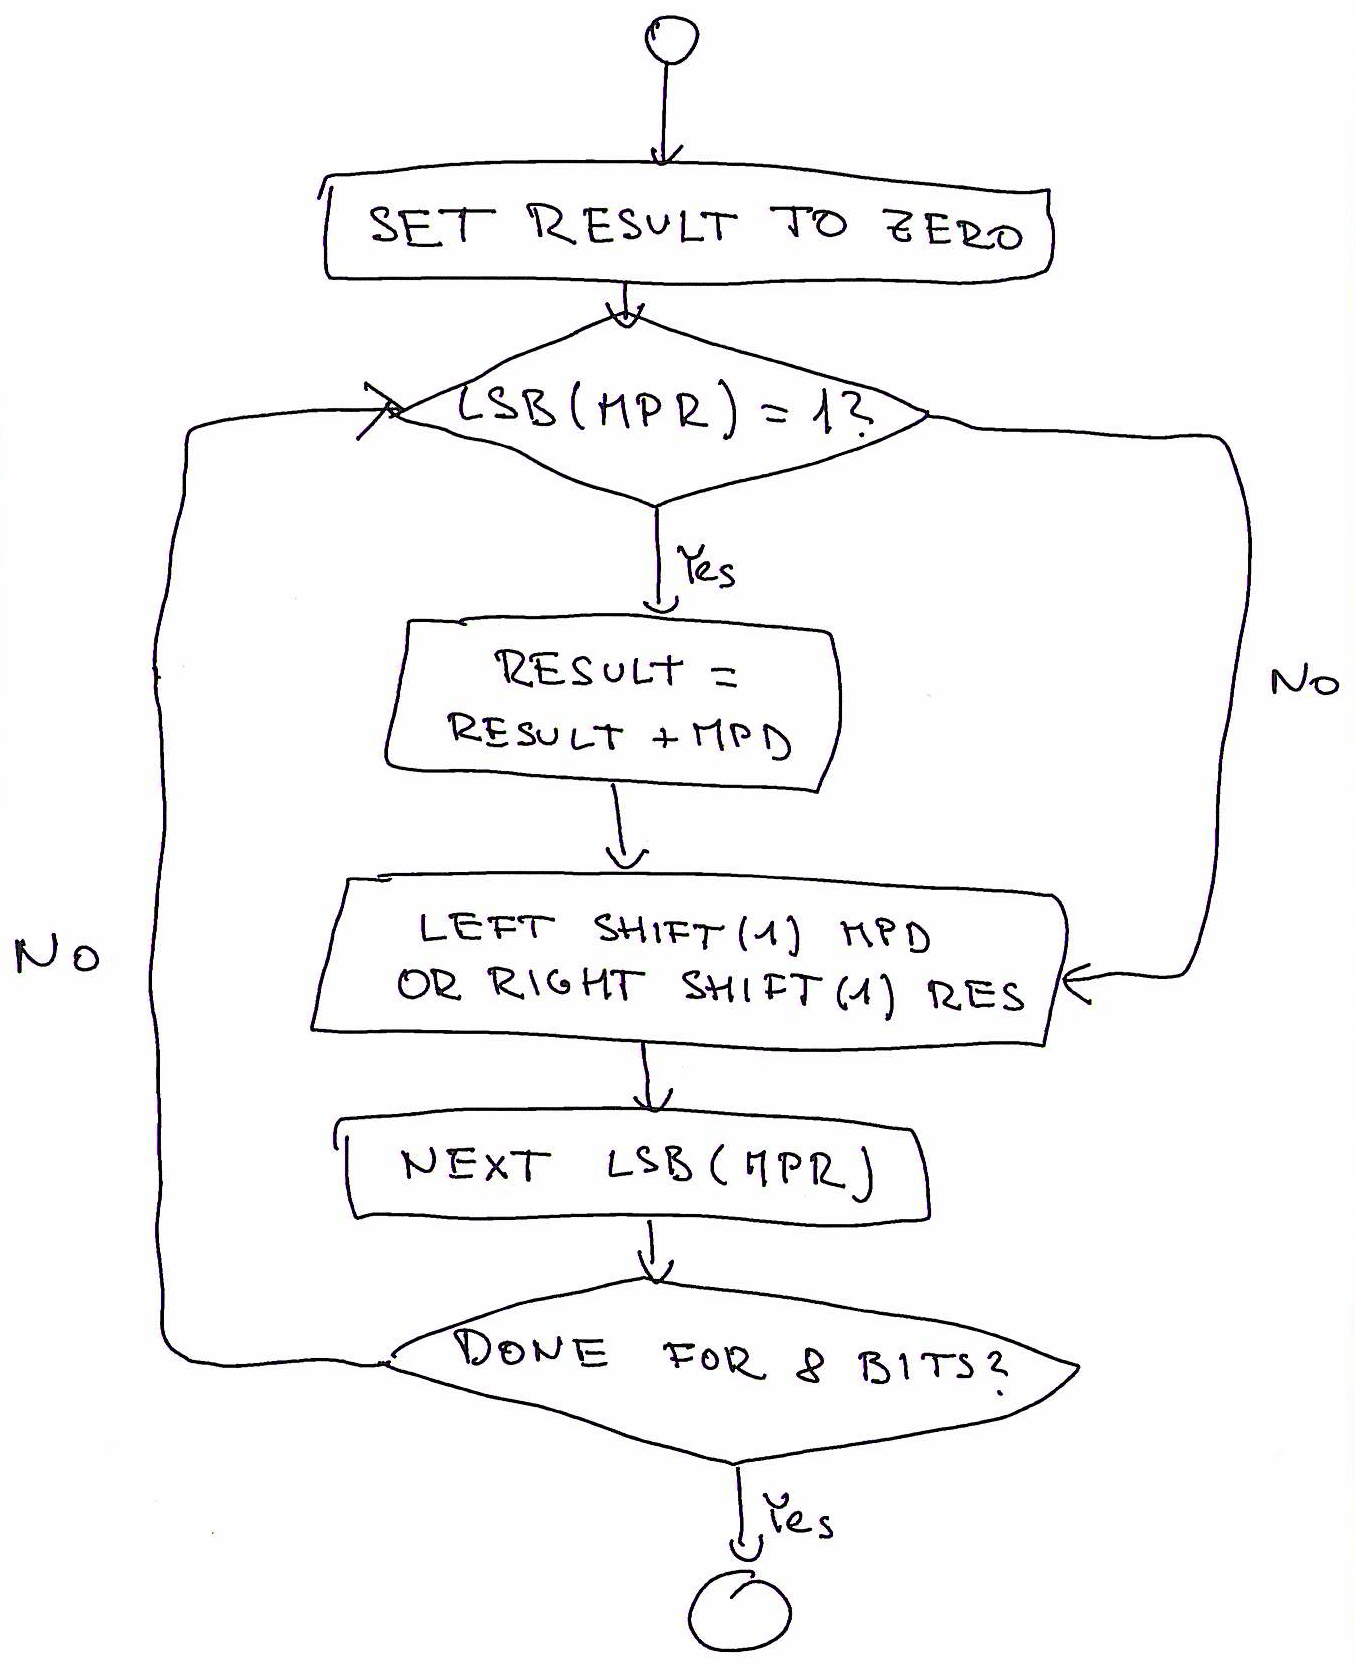 SET RESULT TO ZERO
LSB(MPR) = 1?
Yes
RESULT =
RESULT + MPD
No
LEFT SHIFT(1) MPD
OR RIGHT SHIFT(1) RES
No
NEXT LSB(MPR)
DONE FOR 8 BITS?
Yes